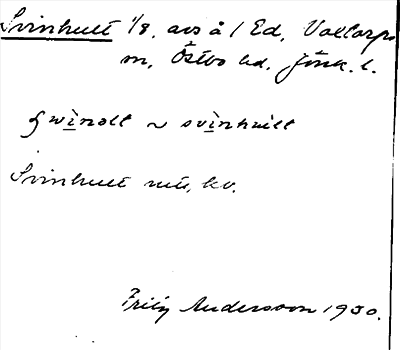 Svinhult 1/8, avs å 1 Ed, Valtorps
m, Östbo hd. Jönk. l.
svìnolt ~ svìnhuilt
Svinhult mts, kv.
Fritz Andersson 1930.